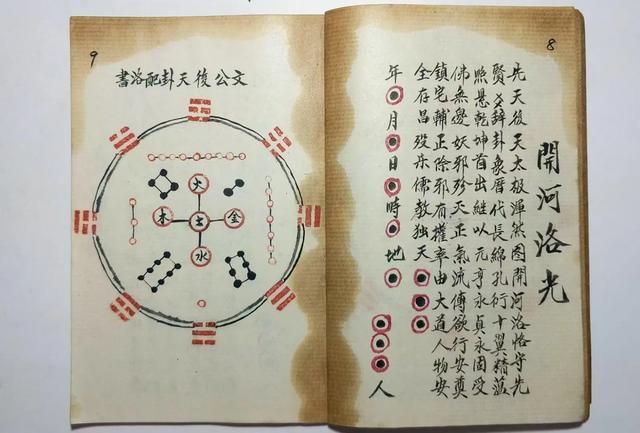 8
開河洛光
先天後天太极渾然图開河洛恪守先
賢爻辞卦象厝代長綿孔衍十翼精蕴
照悬乾坤首出継以元亨永貞永固受
佛無邊妖邪殄灭正氣流傳欲行安奠
鎮宅輔正除邪有權率由大道人物安
全存昌殁乐儒教独天
年月日時地
人
9
文公後天卦配洛書
火
木土金
水